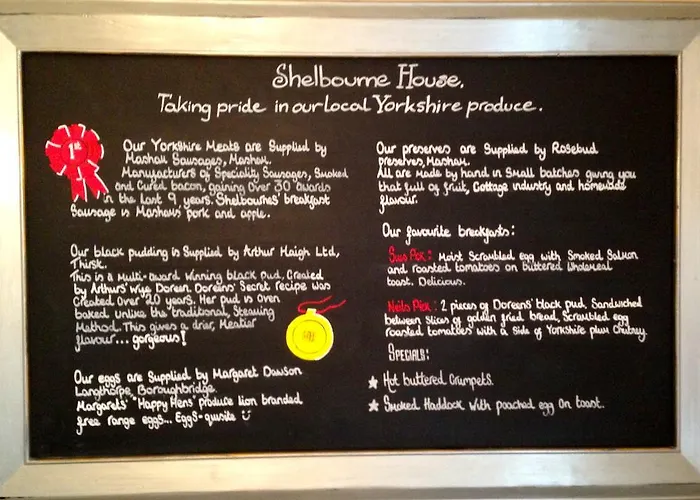 Shelbourne House.
Taking pride in our local Yorkshire produce.
1st
Our Yorkshire Meats are Supplied by
Masham Sausages, Masham.
Manufacturers of Speciality Sausages, Smoked
and Cured bacon, gaining over 30 awards
in the last 9 years. Shelbournes' breakfast
Sausage is Mashams' pork and apple.
Our black pudding is Supplied by Arthur Haigh Ltd,
Thirsk.
This is a Multi-award winning black pud. Created
by Arthurs' wife Doreen. Doreens' Secret recipe was
Created over 20 years. Her pud is oven
baked unlike the traditional, Steaming
Method. This gives a drier, Meatier
flavour... gorgeous!
Our eggs are Supplied by Margaret Dawson
Langthorpe, Boroughbridge.
Margarets' "Happy Hens" produce lion branded
free range eggs... Eggs-quisite
Our preserves are Supplied by Rosebud
preserves, Masham.
All are made by hand in Small batches giving you
that full of fruit, Cottage industry and homemade
flavour.
Our favourite breakfasts:
Sues Pix: Moist Scrambled egg with Smoked Salmon
and roasted tomatoes on buttered Wholemeal
toast. Delicious.
Neils Pix: 2 pieces of Doreens' black pud, Sandwiched
between Slices of golden fried bread, Scrambled egg
roasted tomatoes with a side of Yorkshire plum Chutney.
Specials:
Hot buttered Crumpets.
Smoked Haddock with poached egg on toast.